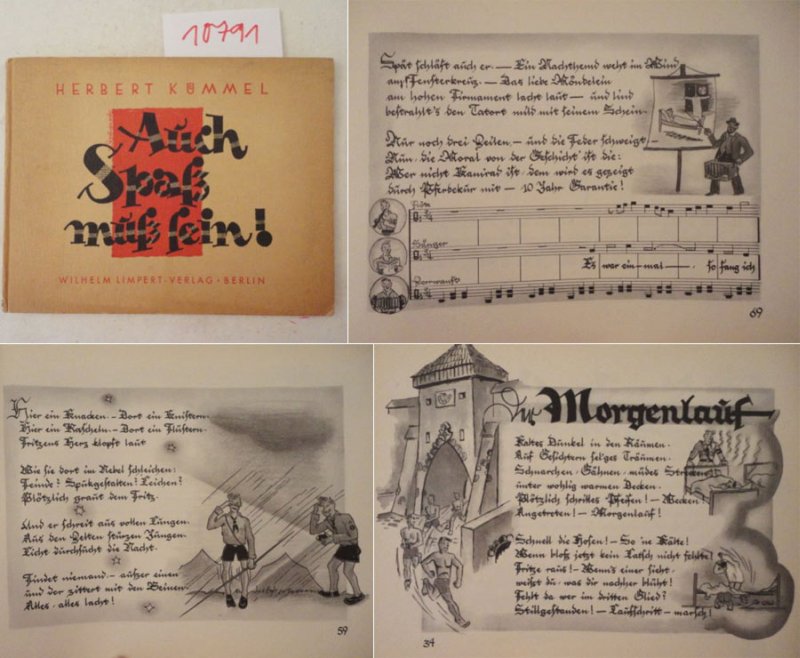 10791
HERBERT KÜMMEL
Auch
Spaß
muß sein!
WILHELM LIMPERT-VERLAG • BERLIN
Spät schläft auch er. — Ein Nachthemd weht im Wind
am Fensterkreuz. — Das liebe Möndelein
am hohen Firmament lacht laut — und lind
bestrahlt's den Tatort mild mit seinem Schein.
Nur noch drei Zeilen, — und die Feder schweigt
Nun, die Moral von der Geschicht' ist die:
Wer nicht Kamrad ist, dem wird es gezeigt
durch Pfirbekür mit — 10 Jahr Garantie!
Flöte
Sänger
Es war ein-mal —, so fang ich
69
Hier ein Knacken. — Dort ein Knistern.
Hier ein Rascheln. — Dort ein Flüstern.
Fritzens Herz klopft laut
Wie sie dort im Nebel schleichen:
Feinde? Spukgestalten? Leichen?
Plötzlich graut dem Fritz.
Und er schreit aus vollen Lungen.
Aus den Zelten stürzen Jungen.
Licht durchsucht die Nacht.
Findet niemand — außer einen
und der zittert mit den Beinen.
Alles, alles lacht!
59
Der Morgenlauf
Kaltes Dunkel in den Räumen.
Auf Gesichtern sel'ges Träumen.
Schnarchen, Gähnen, müdes Strecken
unter wohlig warmen Decken.
Plötzlich schrilles Pfeifen! — Wecken
Angetreten! — Morgenlauf!
Schnell die Hosen! — So 'ne Kälte!
Wenn bloß jetzt kein Latsch nicht fehlte!
Fritze raus! — Wenn's einer sieht,
weißt du, was dir nachher blüht!
Fehlt da wer im dritten Glied?
Stillgestanden! — Laufschritt — marsch!
34